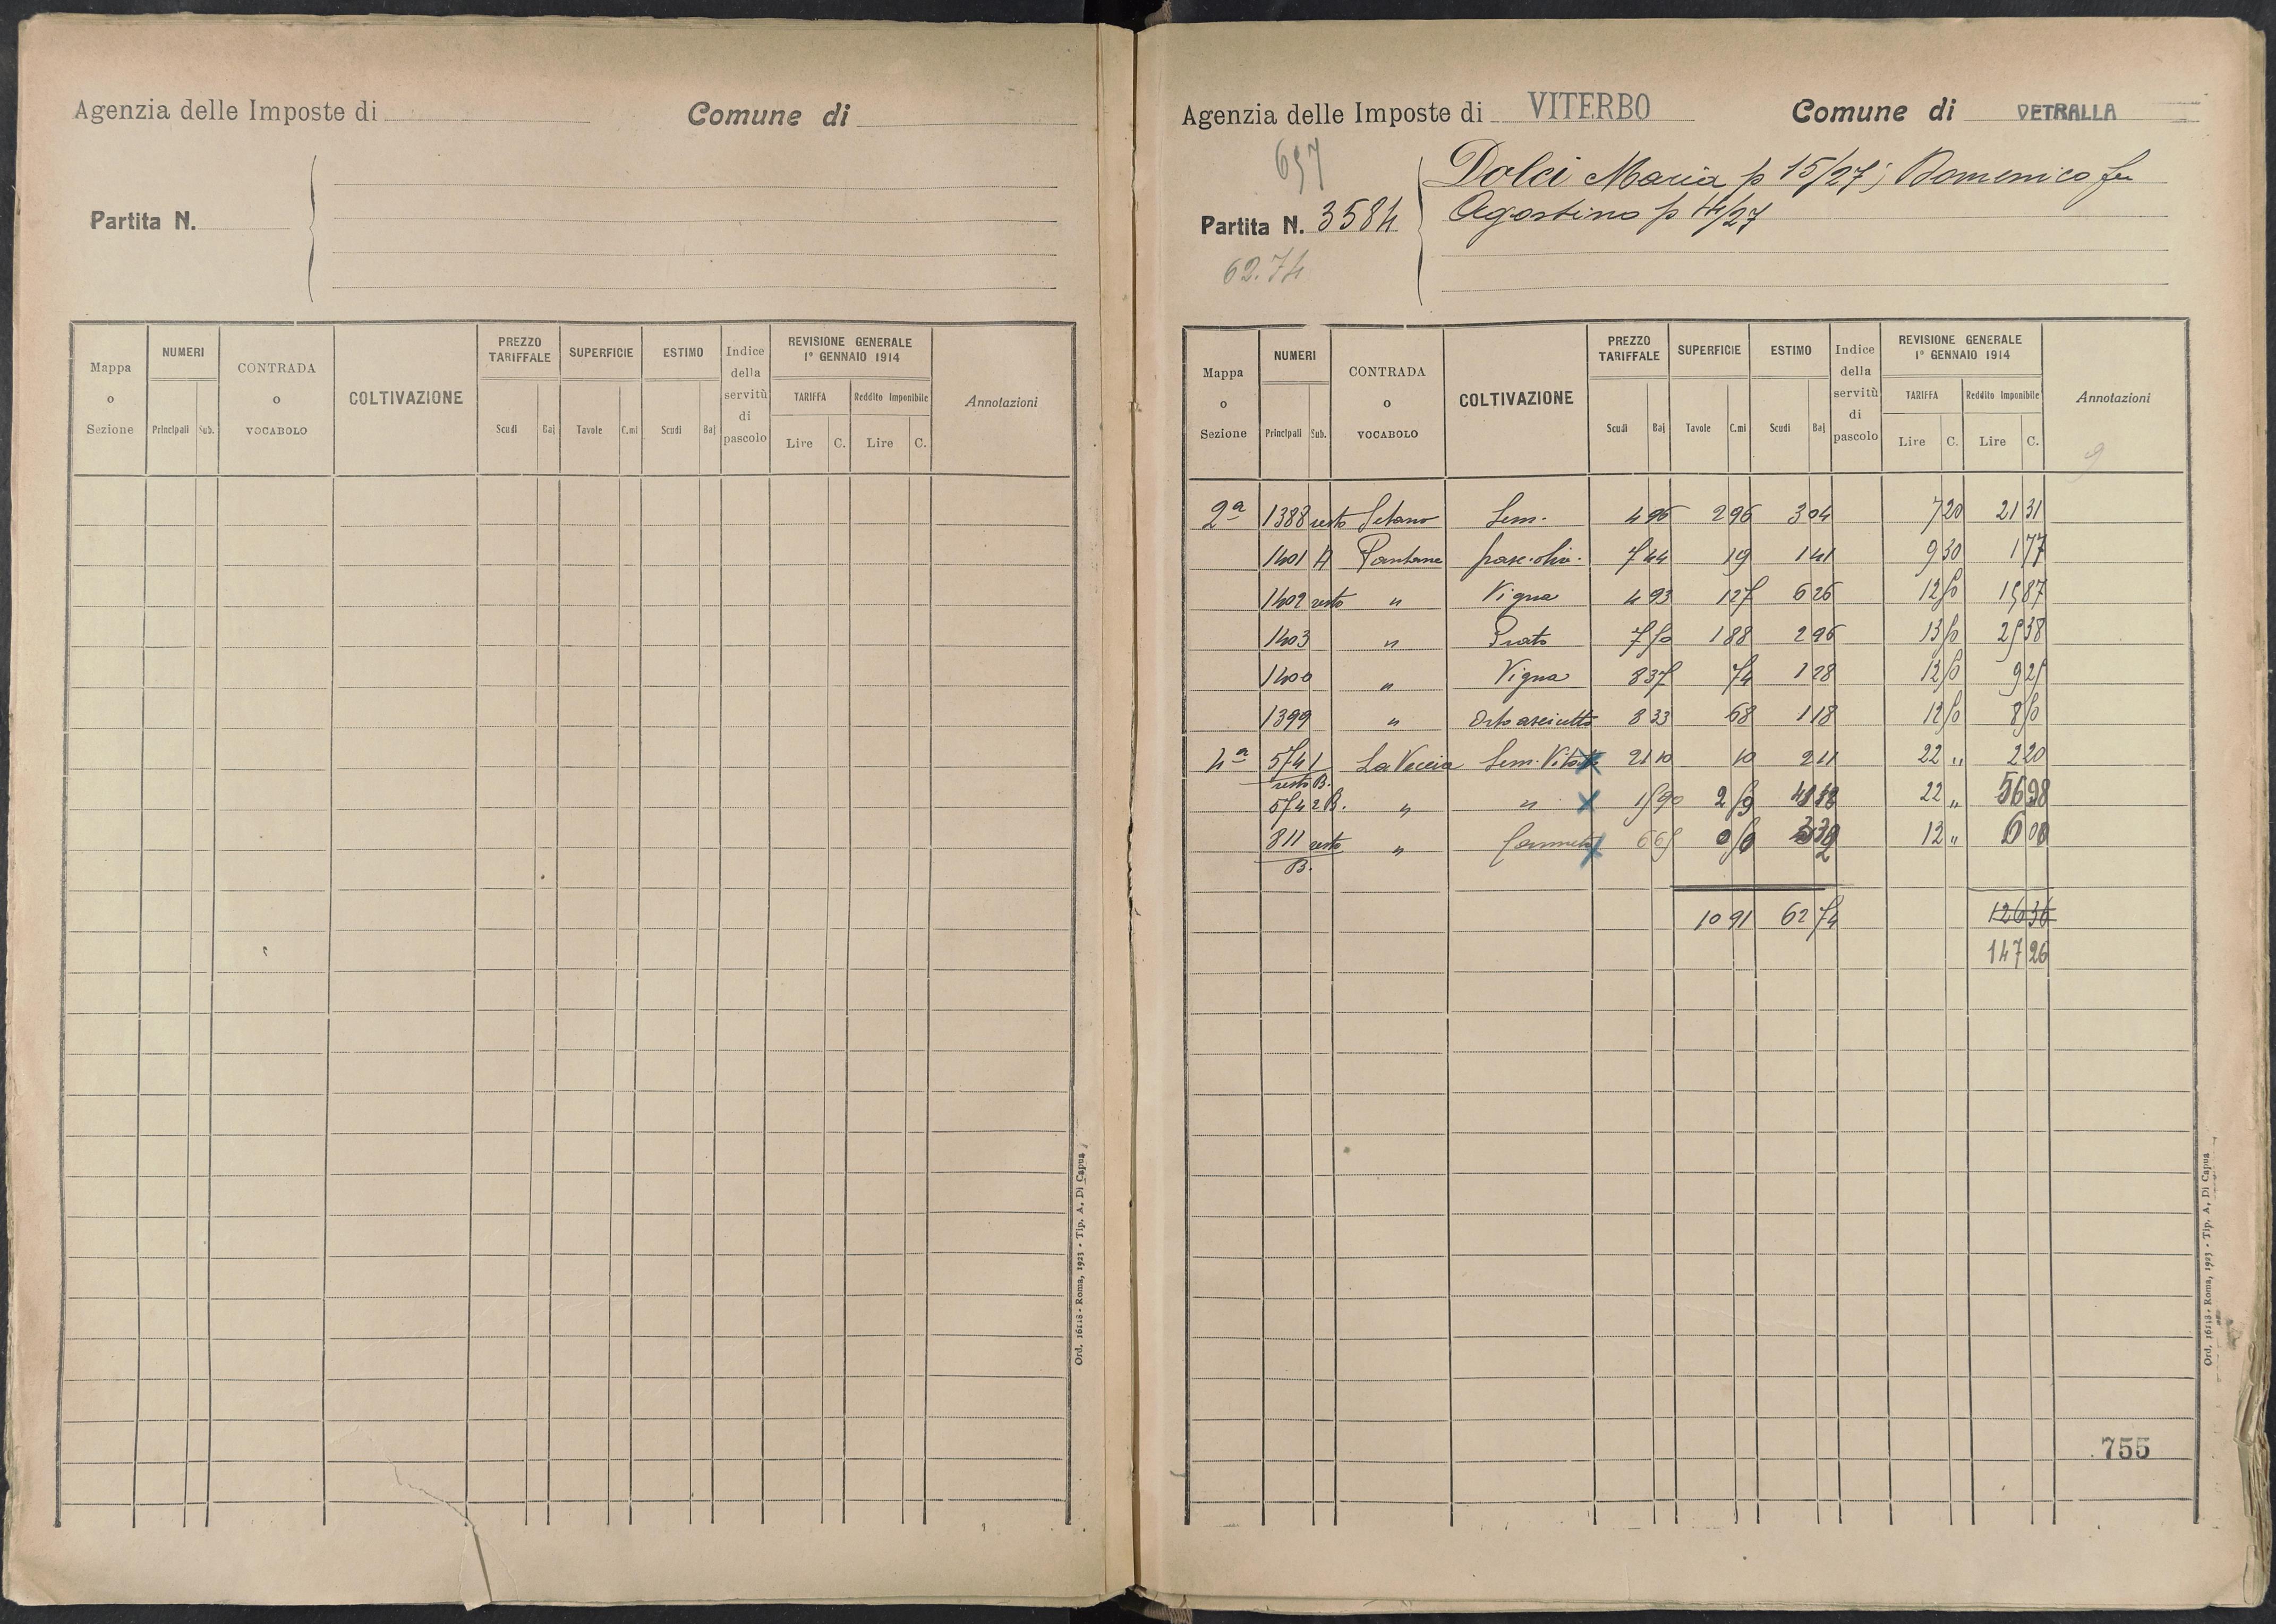 Agenzia delle Imposte di
Comune di
Partita N.
Mappa o Sezione
NUMERI
Principali Sub.
CONTRADA o VOCABOLO
COLTIVAZIONE
PREZZO TARIFFALE
Scudi Baj
SUPERFICIE
Tavole C.mi
ESTIMO
Scudi Baj
Indice della servitù di pascolo
REVISIONE GENERALE
1° GENNAIO 1914
TARIFFA
Lire C.
Reddito Imponibile
Lire C.
Annotazioni
Ord. 16118 - Roma, 1923 - Tip. A. Di Capua
Agenzia delle Imposte di VITERBO
Comune di VETRALLA
657
Dolci Maria p 15/27; Domenico fu
Partita N. 3584
Agostino p 4/27
62.74
Mappa o Sezione
NUMERI
Principali Sub.
CONTRADA o VOCABOLO
COLTIVAZIONE
PREZZO TARIFFALE
Scudi Baj
SUPERFICIE
Tavole C.mi
ESTIMO
Scudi Baj
Indice della servitù di pascolo
REVISIONE GENERALE
1° GENNAIO 1914
TARIFFA
Lire C.
Reddito Imponibile
Lire C.
Annotazioni
9
2ª 1388 resto Sem. 2 96 3 04 7 20 21 31
1401 A Pantane pasc. oliv. 7 44 19 1 41 9 30 1 77
1402 resto " Vigna 4 93 1 27 6 26 12 50 15 87
1403 " Prato 7 50 1 88 2 96 13 50 25 38
1400 " Vigna 8 37 74 1 28 12 50 9 25
1399 " Orto asciutto 8 33 68 1 18 12 50 8 50
4ª 5741 resto B. La Veccia Sem. Vitato 21 10 10 2 11 22 " 2 20
5742 B. " " 15 90 2 59 22 " 56 98
811 resto B. " Canneto 6 65 0 50 12 " 6 00
10 91 62 74 126 36
147 26
755
Ord. 16118 - Roma, 1923 - Tip. A. Di Capua